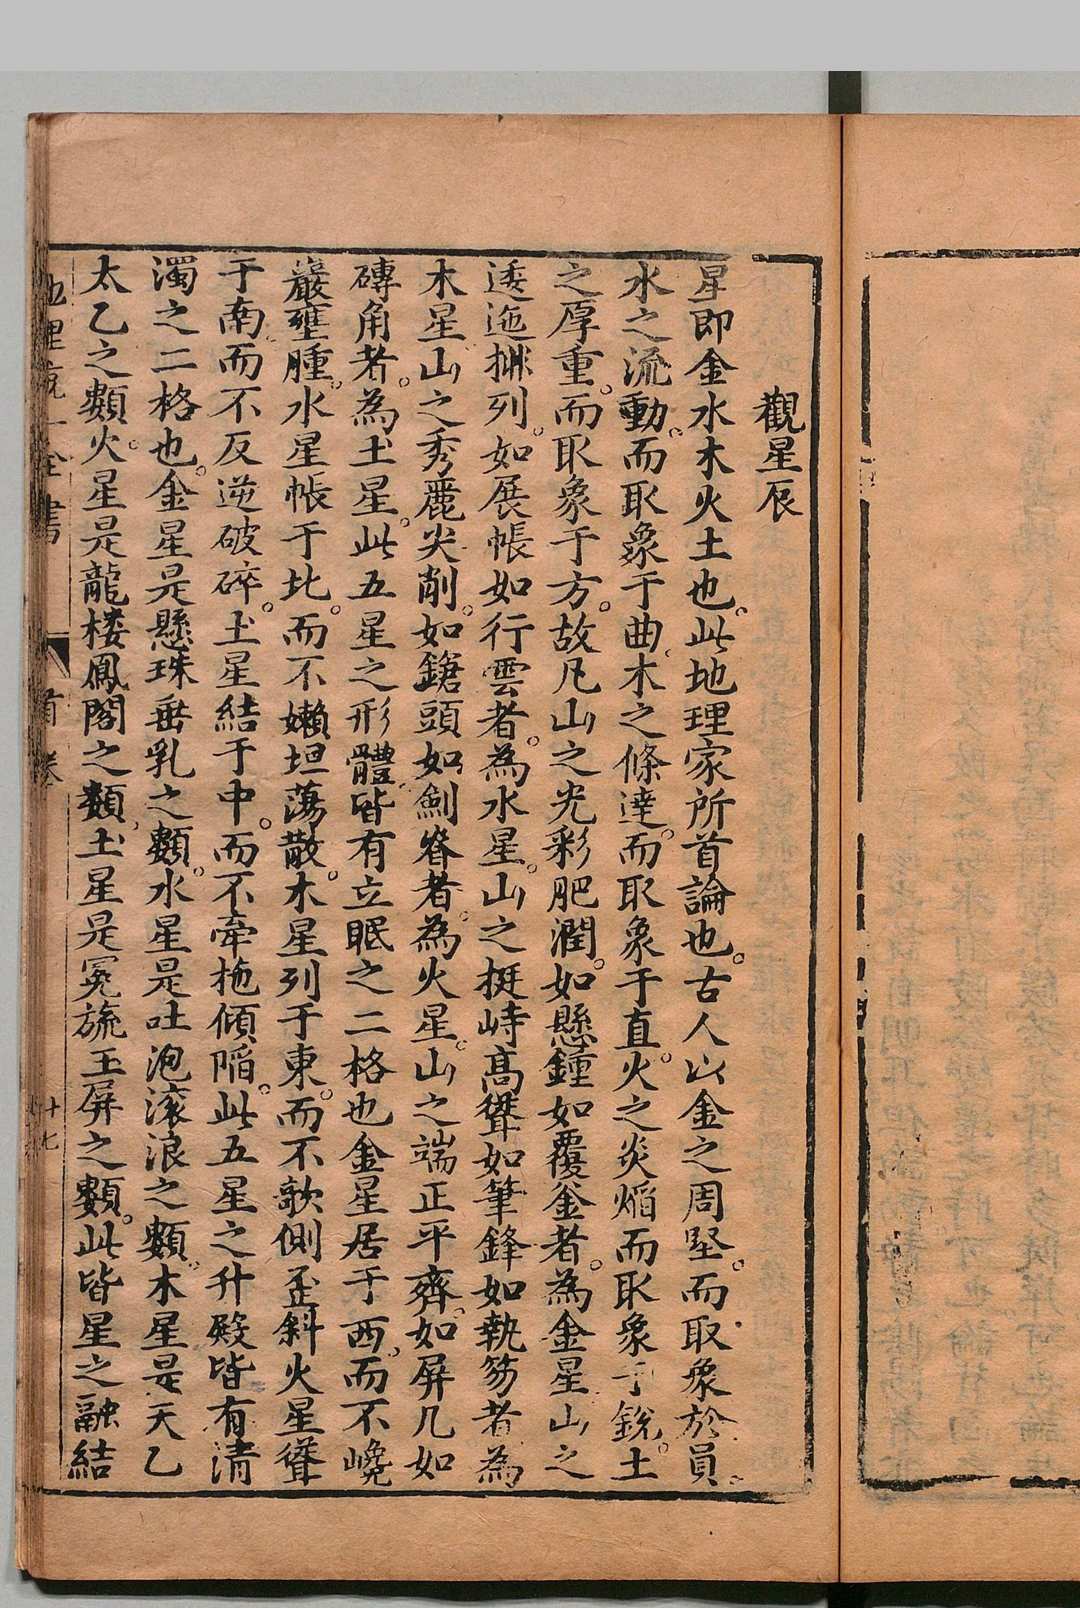 觀星辰
星即金水木火土也此地理家所首論也古人以金之周堅而取象於員
水之流動而取象于曲木之條達而取象于直火之炎焰而取象于銳土
之厚重而取象于方故凡山之光彩肥潤如懸鐘如覆釜者為金星山之
逶迤排列如展帳如行雲者為水星山之挺峙高聳如筆鋒如執笏者為
木星山之秀麗尖削如鎗頭如劍脊者為火星山之端正平齊如屏几如
磚角者為土星此五星之形體皆有立眠之二格也金星居于西而不巉
巖壅腫水星帳于北而不嬾坦蕩散木星列于東而不欹側歪斜火星聳
于南而不反逆破碎土星結于中而不牽拖傾陷此五星之升殿皆有清
濁之二格也金星是懸珠垂乳之類水星是吐泡滚浪之類木星是天乙
太乙之類火星是龍楼鳳閣之類土星是冕旒玉屏之類此皆星之融結
地理 全書
首卷
十七